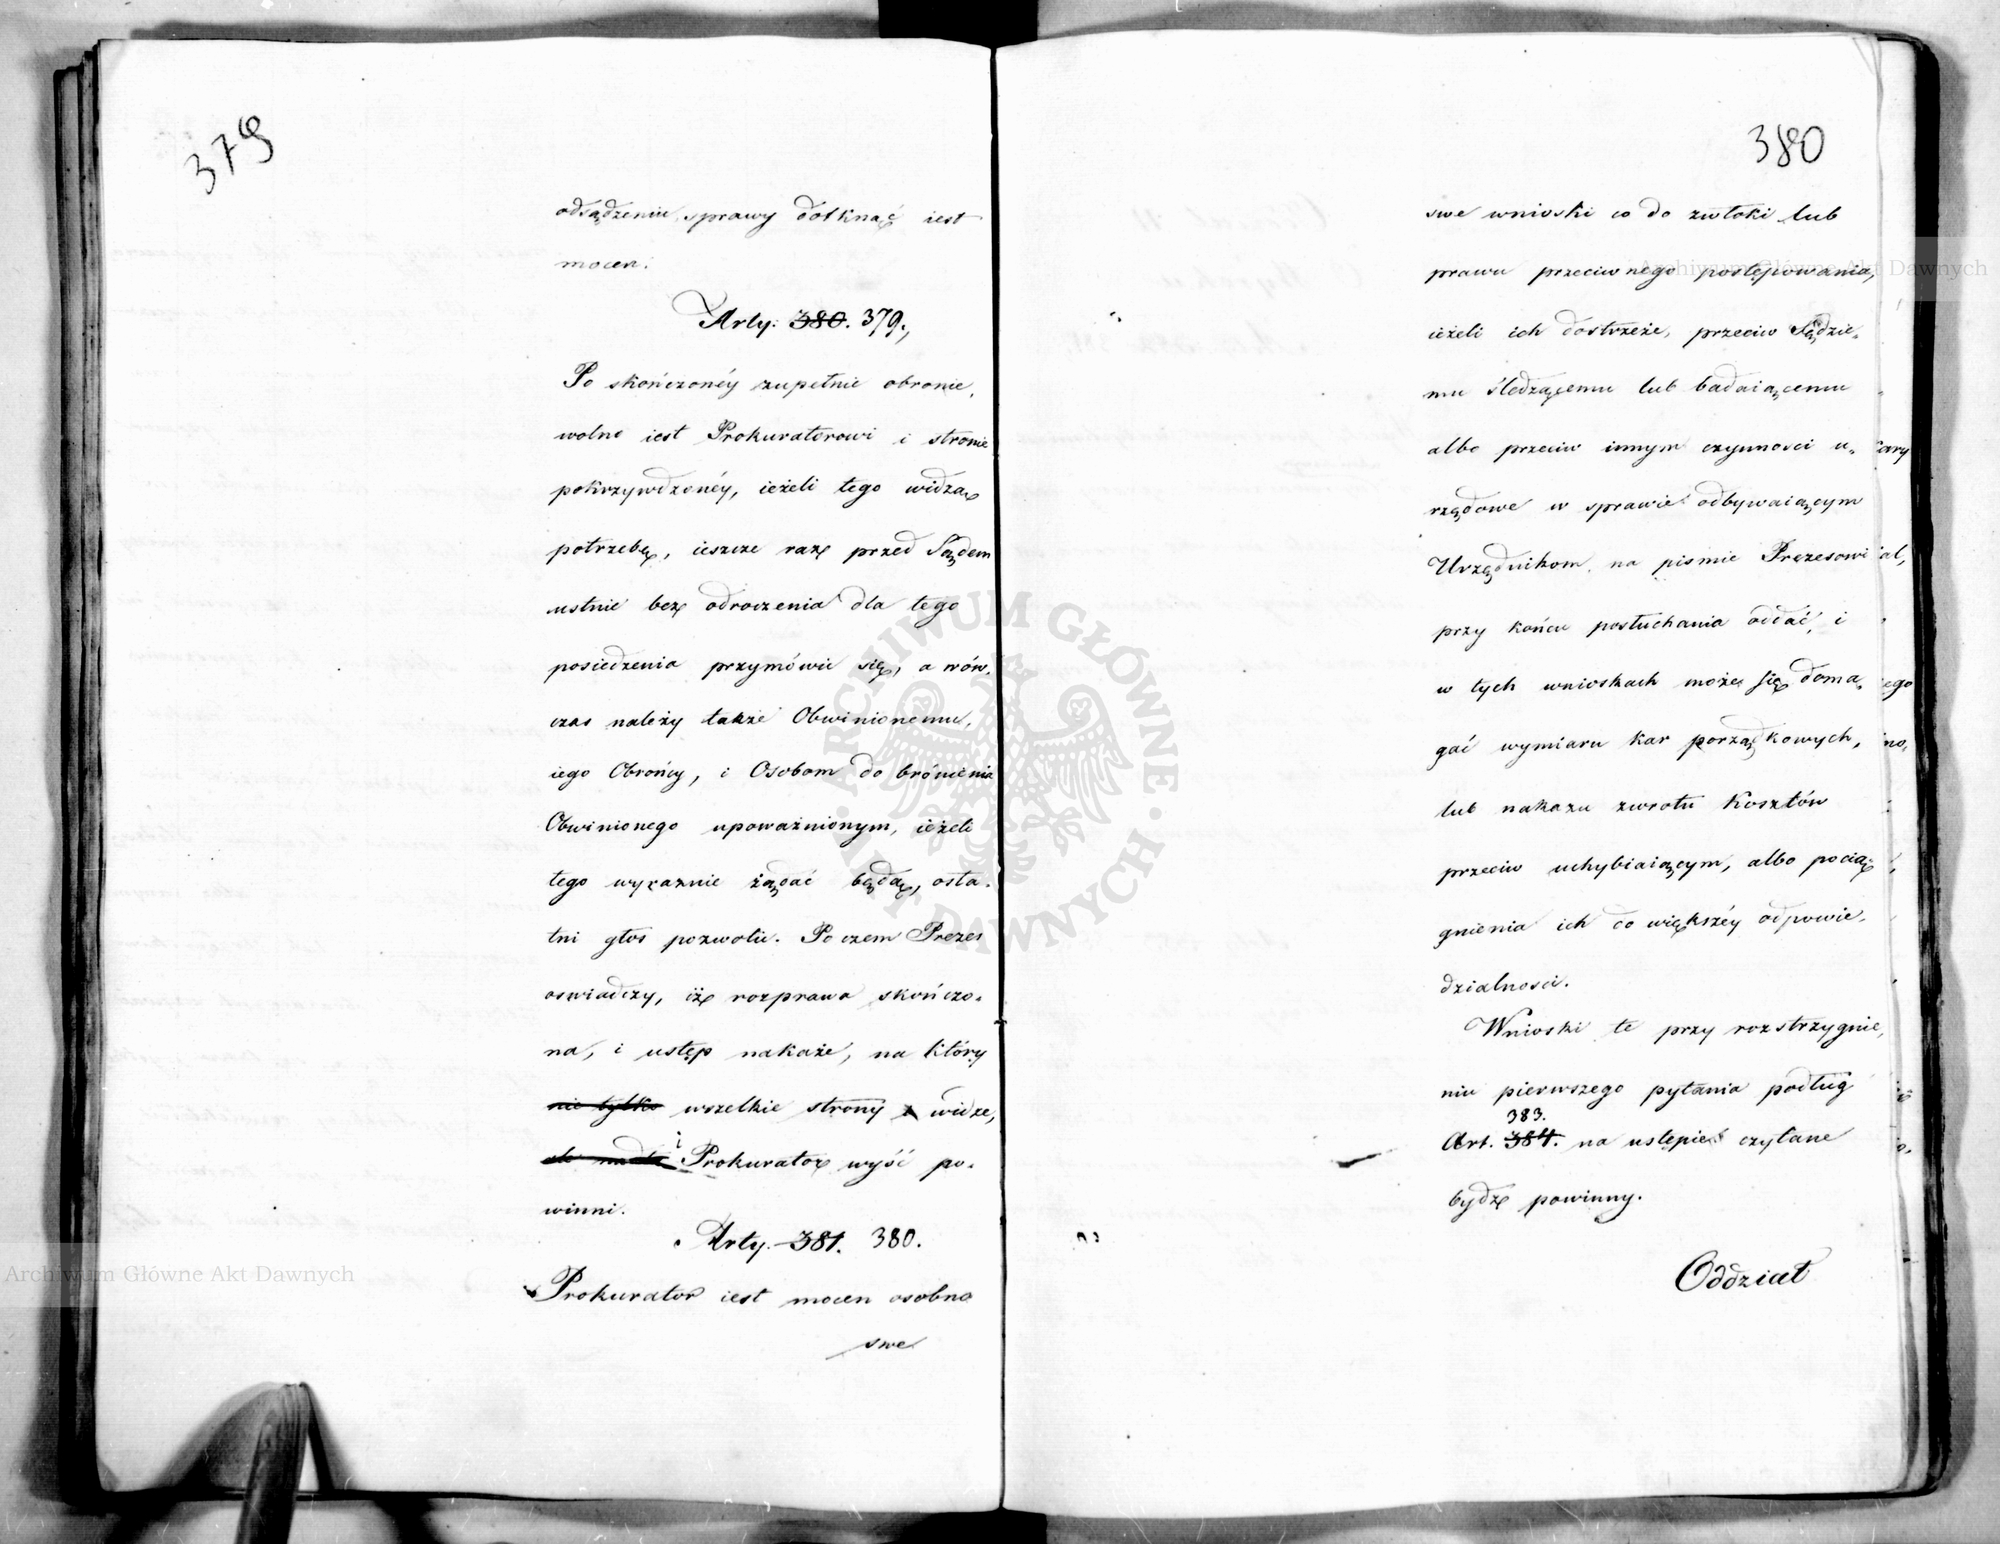 379
odsądzeniu sprawy dotknąć iest
mocen.
Arty: 380. 379.,
Po skończonéy zupełnie obronie,
wolno iest Prokuratorowi i stronie
pokrzywdzonéy, ieżeli tego widzą
potrzebę, ieszcze raz przed Sądem
ustnie bez odroczenia dla tego
posiedzenia przymówić się, a wów-
czas należy także Obwinionemu,
iego Obrońcy, i Osobom do brónienia
Obwinionego upoważnionym, ieżeli
tego wyraznie żądać będą, osta-
tni głos pozwolić. Po czem Prezes
oswiadczy, iż rozprawa skończo-
na, i ustęp nakaże, na który
nie tylko wszelkie strony widze,
i
Prokurator wyść po-
winni.
Arty. 381. 380.
Prokurator iest mocen osobno
swe
380
swe wnioski co do zwłoki lub
prawu przeciwnego postępowania,
ieżeli ich dostrzeże, przeciw Sędzie-
mu śledzącemu lub badaiącemu
albo przeciw innym czynnosci u-
rzędowe w sprawie odbywaiącym
Urzędnikom, na pismie Prezesowi
przy końcu posłuchania oddać, i
w tych wnioskach może się doma-
gać wymiaru kar porządkowych,
lub nakazu zwrotu Kosztów
przeciw uchybiaiącym, albo pocią-
gnienia ich do większéy odpowie-
dzialnosci.
Wnioski te przy rozstrzygnie,
niu pierwszego pytania podług
383.
Art. 384. na ustępie czytane
bydź powinny.
Oddział
Archiwum Główne Akt Dawnych
Archiwum Główne Akt Dawnych
ARCHIWUM GŁÓWNE · AKT DAWNYCH ·